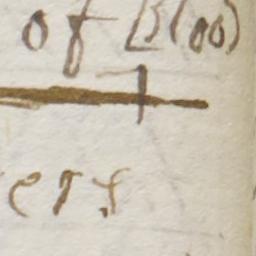 of Bloo)
ers